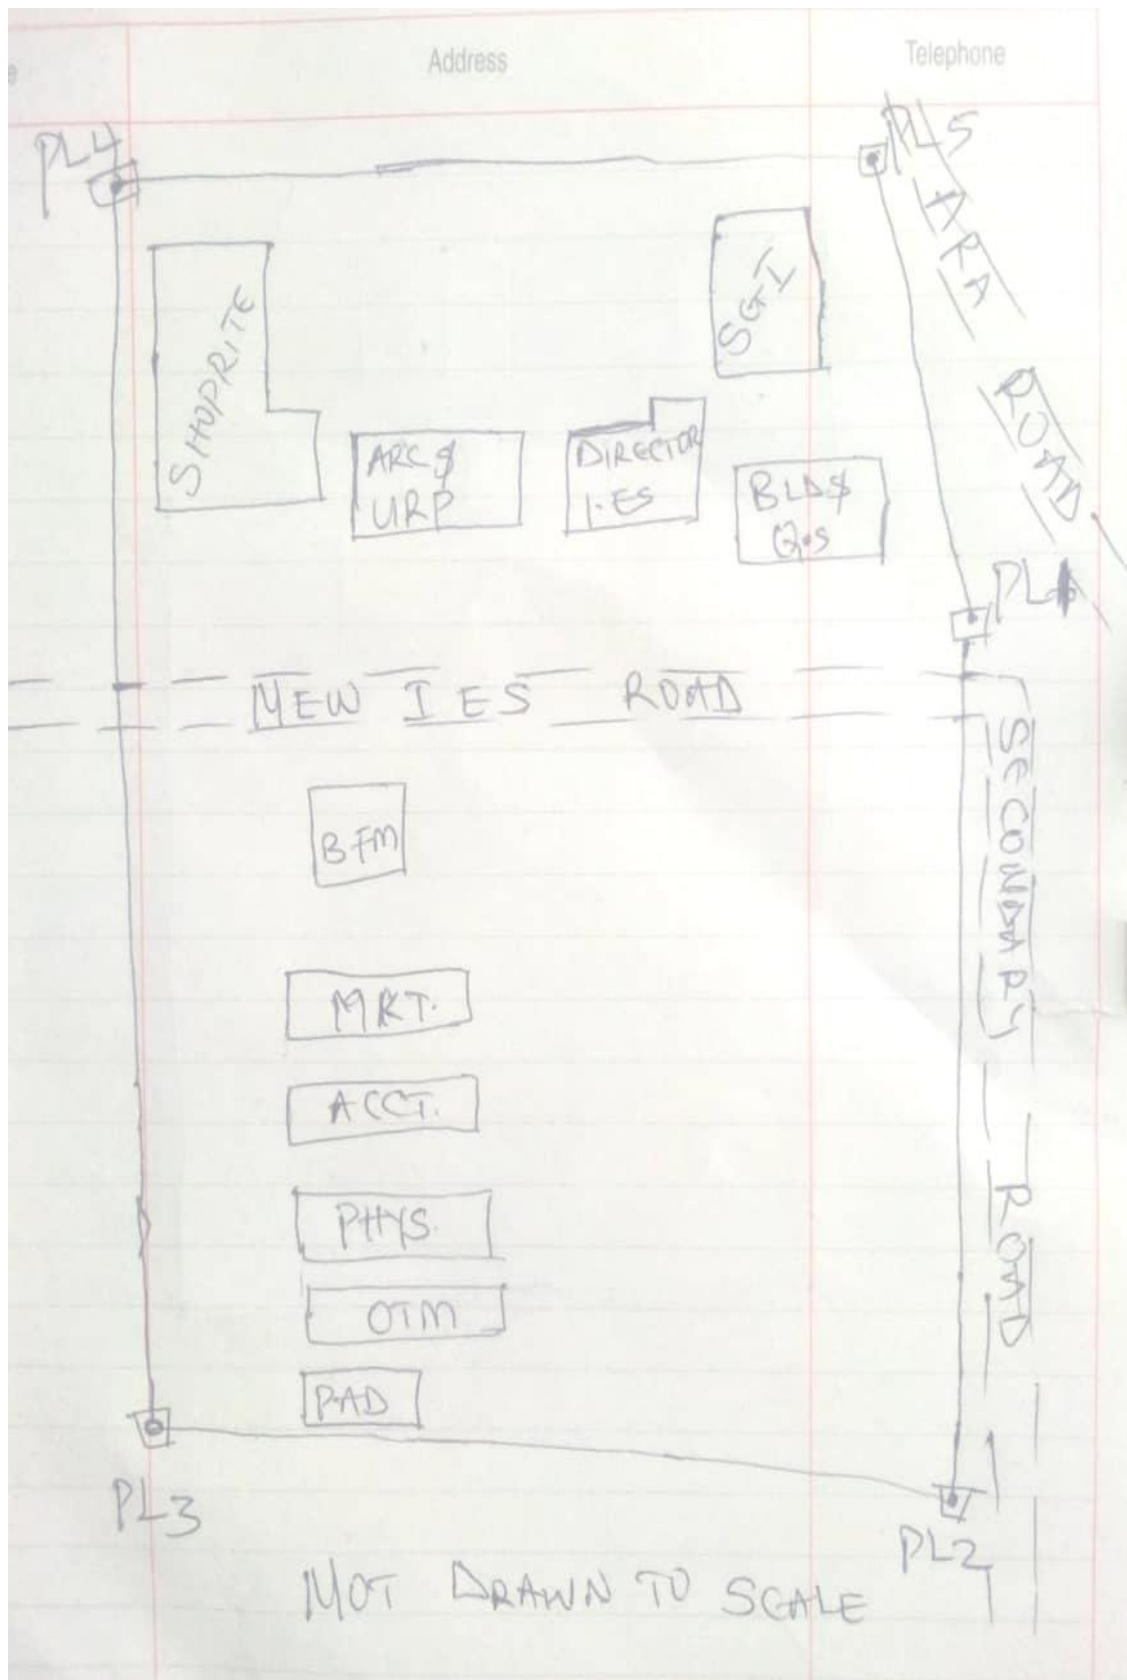 Address
Telephone
PL4
PL5
ARA ROAD
SHOPRITE
SGI
ARC $
URP
DIRECTOR
I.ES
BLD $
Q.S
PL1
NEW IES ROAD
SECONDARY ROAD
BFM
MRT.
ACCT.
PHYS.
OTM
PAD
PL3
PL2
NOT DRAWN TO SCALE